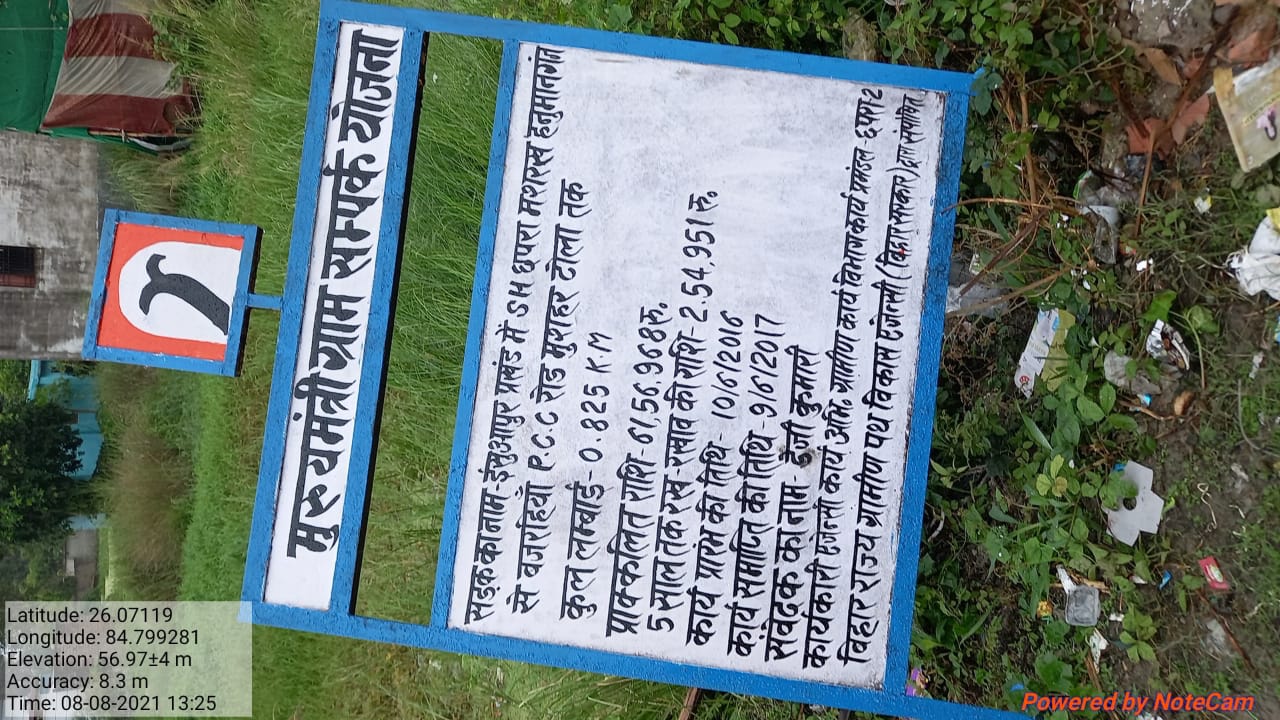 मुख्यमंत्री ग्राम सम्पर्क योजना
सड़क का नाम- ईसुआपुर प्रखंड में SH छपरा मशरख हनुमानगंज
से वजरहियाँ P.C.C रोड मुशहर टोला तक
कुल लम्बाई- 0.825 KM
प्राक्कलित राशि- 61,56,968 रु.
5 साल तक रख रखाव की राशि- 2.54,951 रु.
कार्य प्रारंभ की तिथि- 10/6/2016
कार्य समाप्ति की तिथि- 9/6/2017
संवेदक का नाम- डेजी कुमारी
कार्यकारी एजेन्सी कार्य. अभि. ग्रामीण कार्य विभाग कार्य प्रमंडल- छपरा-2
विहार राज्य ग्रामीण पथ विकास एजेन्सी (विहार सरकार) द्वारा संपोषित
Latitude: 26.07119
Longitude: 84.799281
Elevation: 56.97±4 m
Accuracy: 8.3 m
Time: 08-08-2021 13:25
Powered by NoteCam